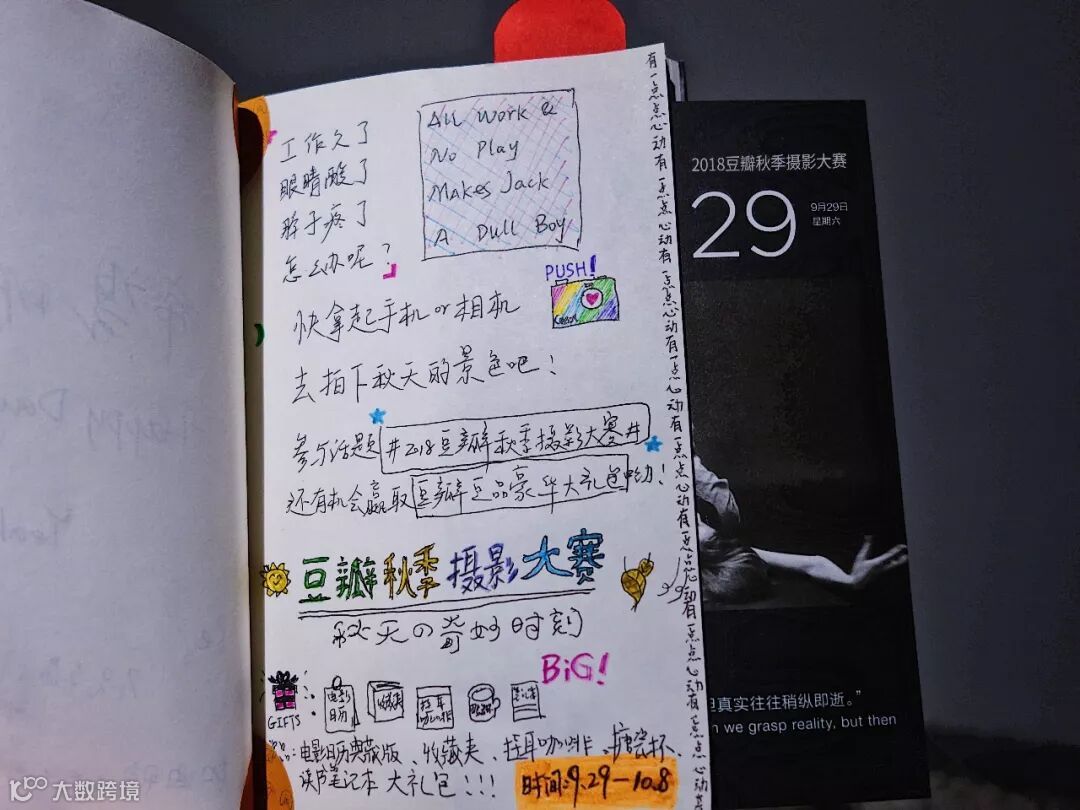 工作久了
眼睛酸了
脖子疼了
怎么办呢?
All Work &
No Play
Makes Jack
A Dull Boy
PUSH!
快拿起手机 or 相机
去拍下秋天的景色吧!
参与话题 #2018豆瓣秋季摄影大赛#
还有机会赢取豆瓣豆品豪华大礼包哟!
豆瓣秋季摄影大赛
秋天の奇妙时刻
BiG!
GIFTS
电影日历
收藏夹
挂耳咖啡
奖品:电影日历典藏版、收藏夹、挂耳咖啡、搪瓷杯、
读书笔记本 大礼包!!!
时间:9.29—10.8
有一点点心动有一点点心动有一点点心动有一点点心动有一点点心动有一点点心动有一点点心动有一点点心动
2018豆瓣秋季摄影大赛
29
9月29日
星期六
但真实往往稍纵即逝。”
n we grasp reality, but then
大数跨境